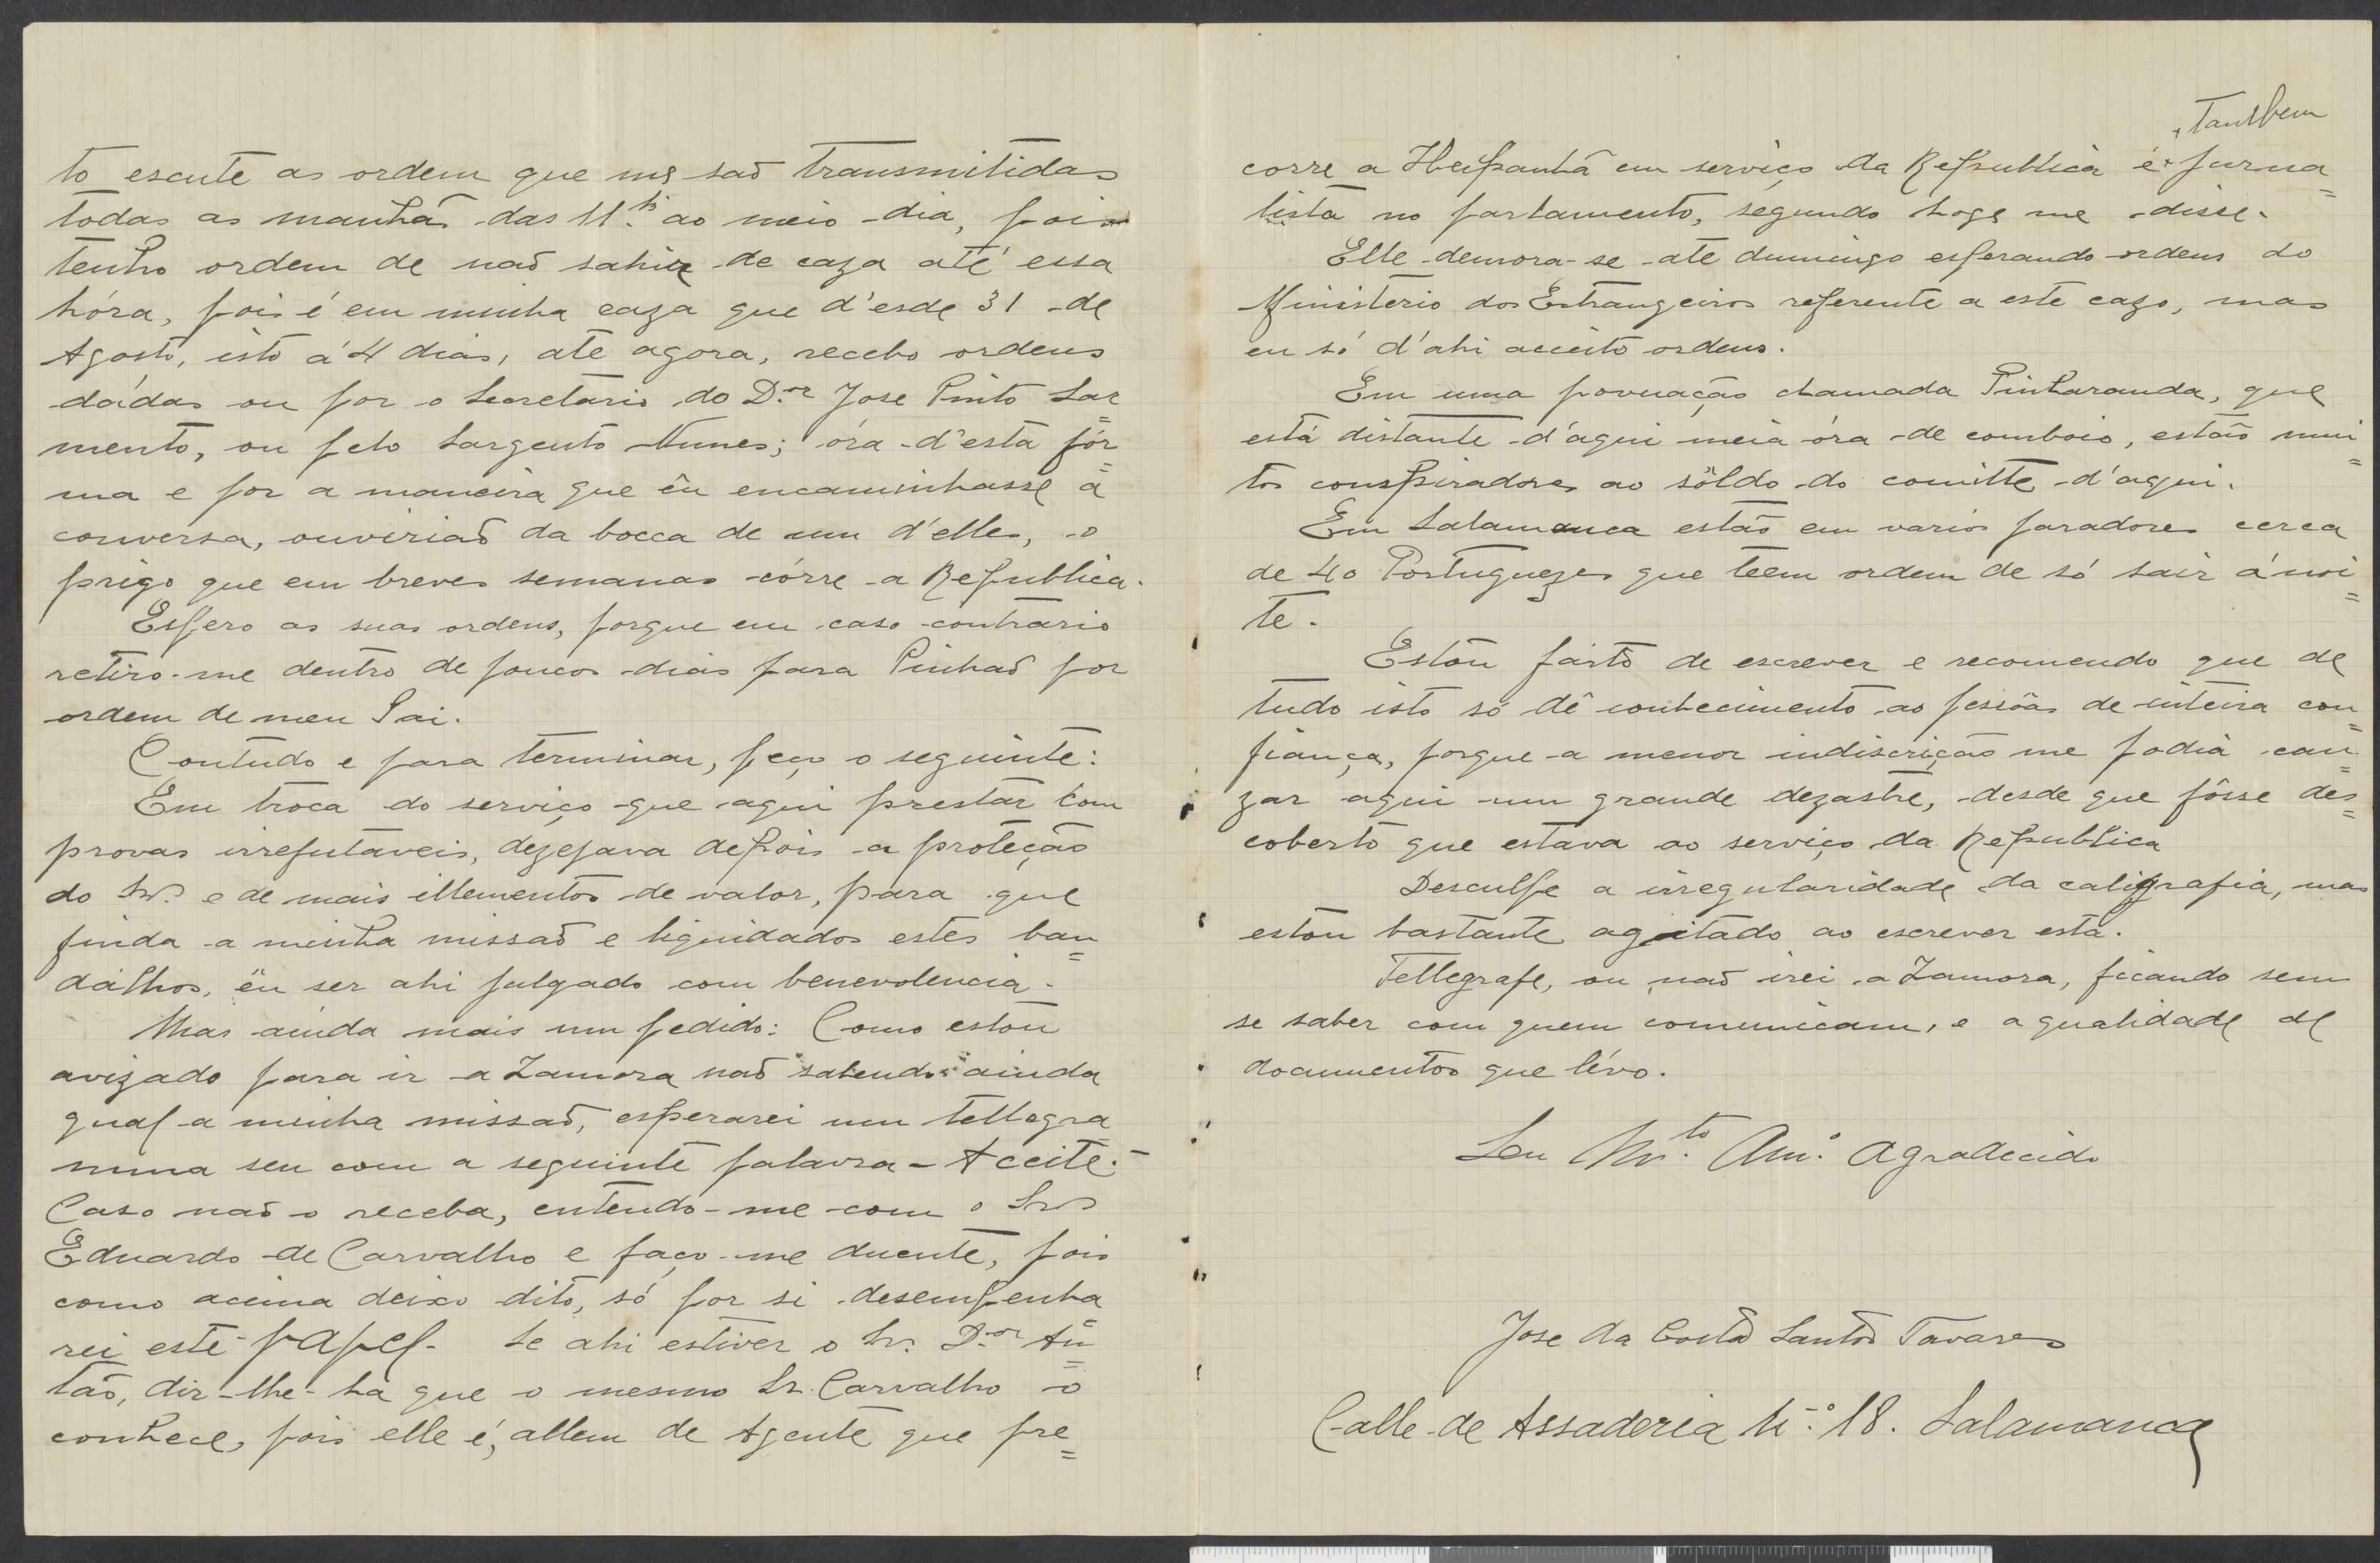 to escute as ordem que me saõ transmitidas
todas as manhãs das 11.h ao meio-dia, pois
tenho ordem de naõ sahir de caza até essa
hóra, pois é em minha caza que d'esde 31 de
Agosto, isto á 4 dias, até agora, recebo ordens
dádas ou por o Secretario do D.or Jose Pinto Sar=
mento, ou pelo Sargento Nunes; óra d'esta fór=
ma e por a maneira que eu encaminhasse a
conversa, ouviriaõ da bocca de um d'elles, o
prigo que em breves semanas córre a Republica.
Espero as suas ordens, porque em caso contrario
retiro-me dentro de poucos dias para Pinhaõ por
ordem de meu Pai.
Contudo e para terminar, peço o seguinte:
Em troca do serviço que aqui prestar com
provas irrefutaveis, dezejava depois a proteção
do Snr. e de mais illementos de valor, para que
finda a minha missaõ e liquidados estes ban=
dálhos, eu ser ahi julgado com benevolencia.
Mas ainda mais um pedido: Como estou
avizado para ir a Zamora naõ sabendo ainda
qual a minha missaõ, esperarei um tellegra
mma seu com a seguinte palavra - Aceite. -
Caso naõ o receba, entendo-me com o Snr
Eduardo de Carvalho e faço-me duente, pois
como acima deixo dito, só por si desempenha
rei este papel. Se ahi estiver o Sr. D.or An=
tão, dir-lhe-ha que o mesmo Sr. Carvalho o
conhece, pois elle é, allem de Agente que pre=
corre a Hespanhã em serviço da Republica é + tambem jurna=
lista no parlamento, segundo hoge me disse.
Elle demora-se até dumingo esperando ordens do
Ministerio dos Estrangeiros referente a este cazo, mas
eu só d'ahi acceito ordens.
Em uma povuação chamada Pinharanda, que
está distante d'aqui meia óra de comboio, estaõ mui=
tos conspiradores ao sôldo do comitte d'aqui.
Em Salamanca estão em varios paradores cerca
de 40 Portuguezes que teem ordem de só sair á noi=
te.
Estou farto de escrever e recomendo que de
tudo isto só dê conhecimento ao pessôas de inteira con=
fiança, porque a menor indiscrição me podia cau=
zar aqui um grande dezastre, desde que fôsse des=
coberto que estava ao serviço da Republica
Desculpe a irregularidade da caligrafia, mas
estou bastante agitado ao escrever esta.
Tellegrafe, ou naõ irei a Zamora, ficando sem
se saber com quem comunicam, e a qualidade de
documentos que lévo.
Seu M.to Am.o Agradecido
Jose da Costa Santos Tavares
Calle de Assaderia N.o 18. Salamanca